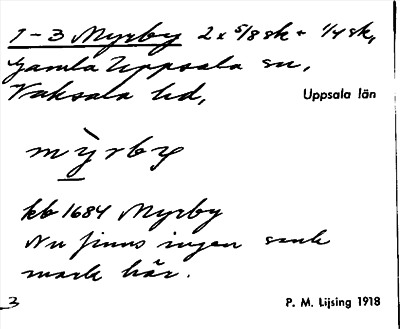 1-3 Myrby 2 x 5/8 sk + 1/4 sk,
Gamla Uppsala sn,
Vaksala hd,
Uppsala län
mỳrby
kb 1684 Myrby
Nu finns ingen sank
mark här.
3
P. M. Lijsing 1918